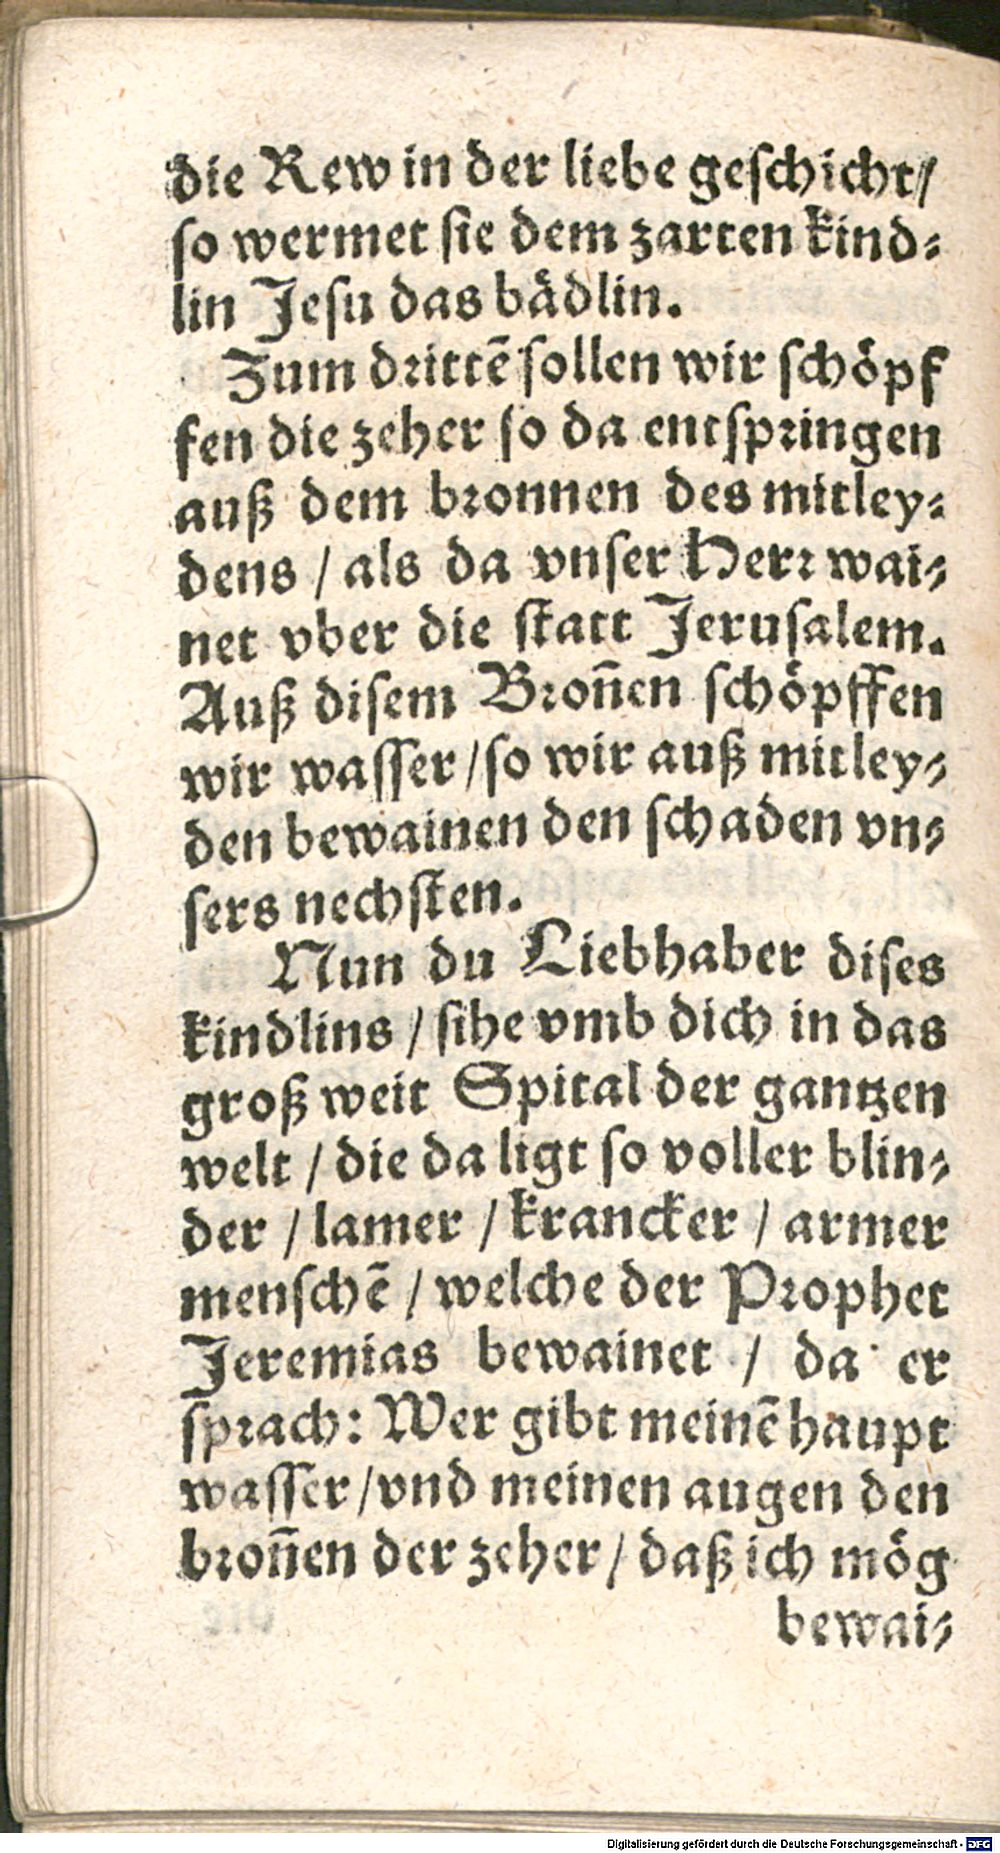 die Rew in der liebe geschicht/
so wermet sie dem zarten kind⸗
lin Jesu das bådlin.
Zum drittē sollen wir schöpf
fen die zeher so da entspringen
auß dem bronnen des mitley⸗
dens / als da vnser Herr wai⸗
net vber die statt Jerusalem.
Auß disem Bron̄en schöpffen
wir wasser / so wir auß mitley⸗
den bewainen den schaden vn⸗
sers nechsten.
Nun du Liebhaber dises
kindlins / sihe vmb dich in das
groß weit Spital der gantzen
welt / die da ligt so voller blin⸗
der / lamer / krancker / armer
menschē / welche der Prophet
Jeremias bewainet / da er
sprach: Wer gibt meinē haupt
wasser / vnd meinen augen den
bron̄en der zeher / daß ich mög
bewai⸗
Digitalisierung gefördert durch die Deutsche Forschungsgemeinschaft - DFG